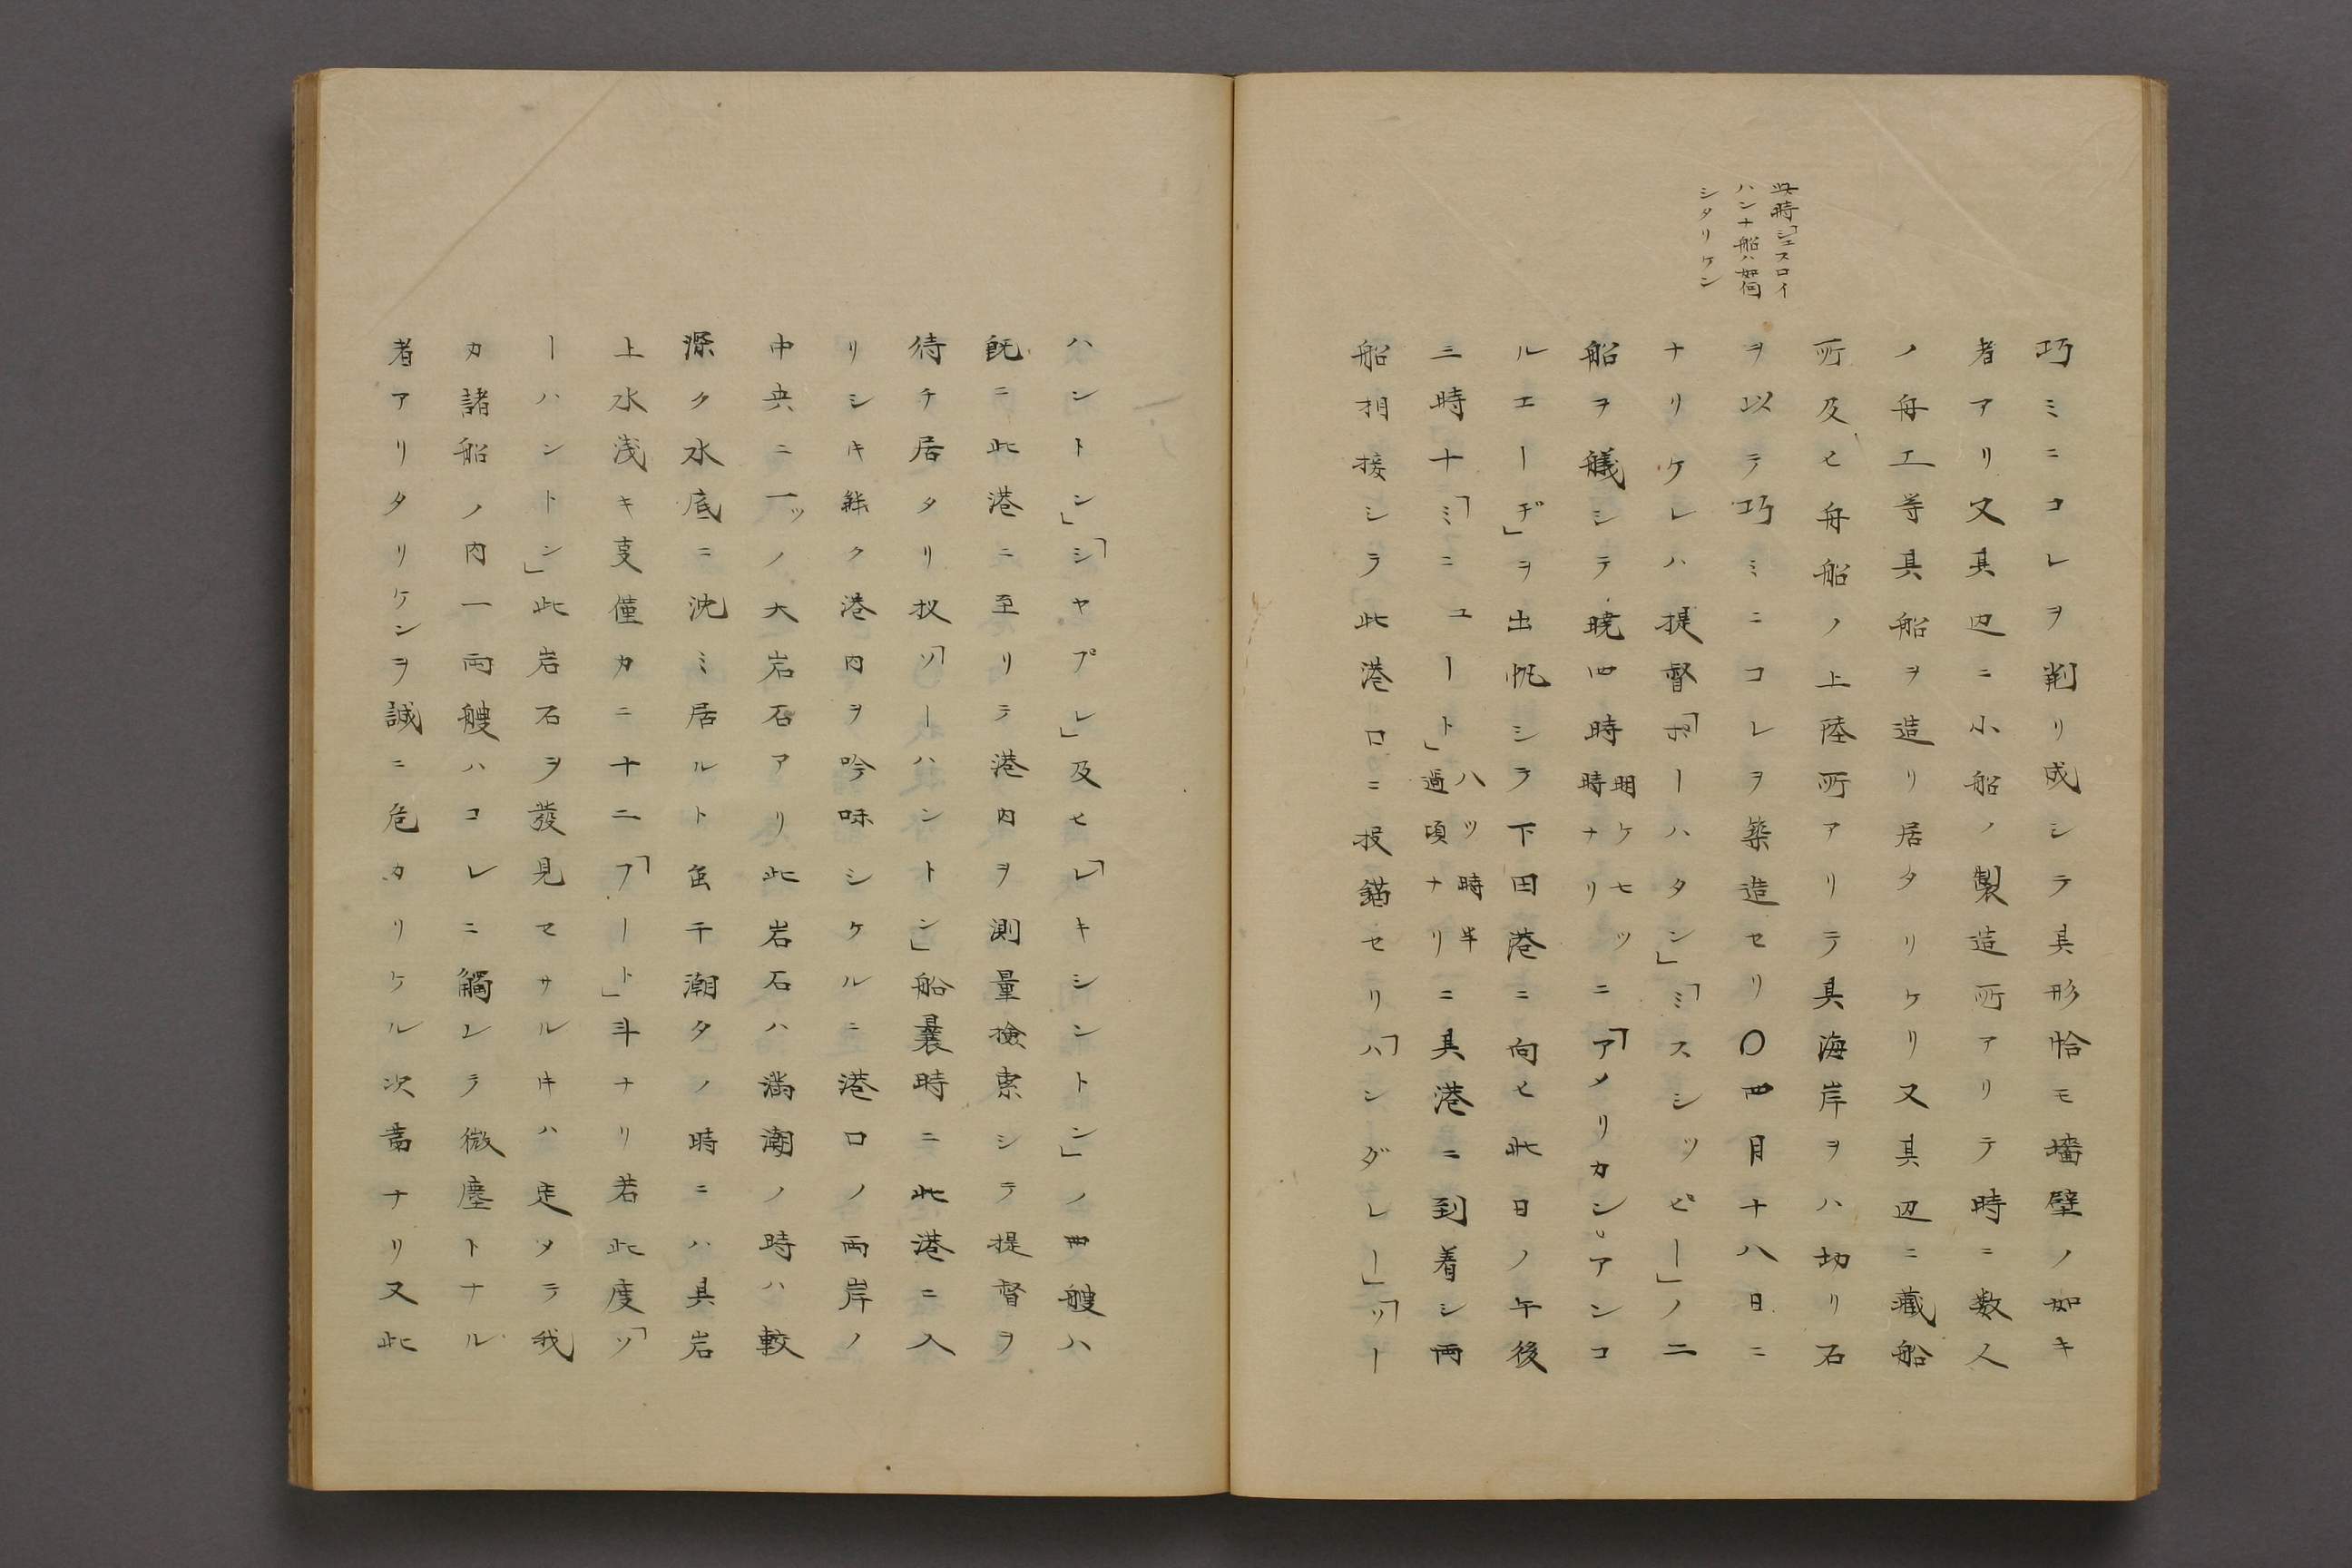 此時「シェスロイ
ハンナ船ハ如何
シタリケン
巧ミニコレヲ削リ成シテ其形恰モ墻壁ノ如キ
者アリ又其辺ニ小船ノ製造所アリテ時ニ数人
ノ舟工等其船ヲ造リ居タリケリ又其辺ニ蔵船
所及ヒ舟船ノ上陸所アリテ其海岸ヲハ切リ石
ヲ以テ巧ミニコレヲ築造セリ〇四月十八日ニ
ナリケレハ提督「ポーハタン」「ミスシッピー」ノ二
船ヲ艤シテ暁四時明ケセツ時ナリニ「アメリカン。アンコ
ルエーヂ」ヲ出帆シテ下田港ニ向ヒ此日ノ午後
三時十「ミニュート」八ツ時半過頃ナリニ其港ニ到着シ両
船相接シテ此港口ニ投錨セリ「ハンダレー」「ツー
ハントン」「シヤプレ」及ヒ「レキシントン」ノ四艘ハ
既ニ此港ニ至リテ港内ヲ測量検索シテ提督ヲ
待チ居タリ扨「ソーハントン」船曩時ニ此港ニ入
リシキ能ク港内ヲ吟味シケルニ港口ノ両岸ノ
中央ニ一ツノ大岩石アリ此岩石ハ満潮ノ時ハ較
深ク水底ニ沈ミ居ルト虽干潮タノ時ニハ其岩
上水浅キ叓僅カニ十二「フート」斗ナリ若此度「ソ
ーハントン」此岩石ヲ發見セサルキハ定メテ我
カ諸船ノ内一両艘ハコレニ觸レテ微塵トナル
者アリタリケンヲ誠ニ危カリケル次第ナリ又此